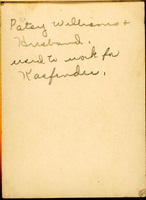 Patsy Williams +
Husband.
used to work for
Kaefender.